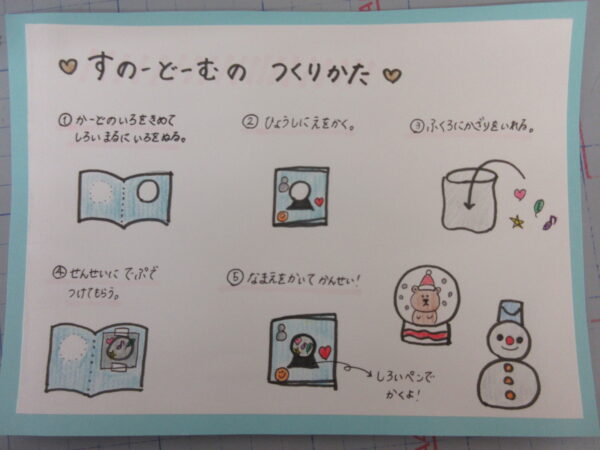 すのーどーむの つくりかた
① かーどのいろをきめて
しろいまるにいろをぬる。
② ひょうしにえをかく。
③ ふくろにかざりをいれる。
④ せんせいに てーぷで
つけてもらう。
⑤ なまえをかいて かんせい!
しろいペンで
かくよ!